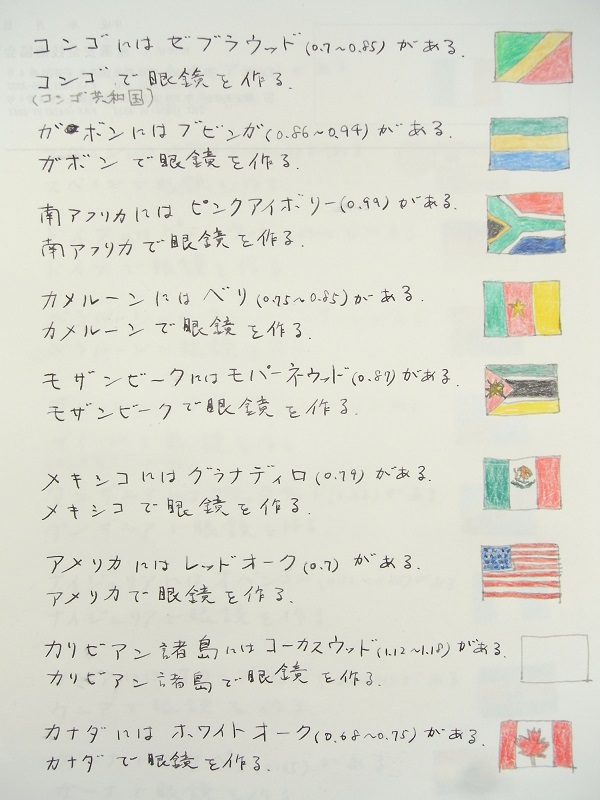 コンゴにはゼブラウッド(0.7~0.85)がある.
コンゴで眼鏡を作る.
(コンゴ共和国)
ガボンにはブビンガ(0.86~0.94)がある.
ガボンで眼鏡を作る.
南アフリカにはピンクアイボリー(0.99)がある.
南アフリカで眼鏡を作る.
カメルーンにはベリ(0.75~0.85)がある.
カメルーンで眼鏡を作る.
モザンビークにはモパーネウッド(0.87)がある.
モザンビークで眼鏡を作る.
メキシコにはグラナディロ(0.79)がある.
メキシコで眼鏡を作る.
アメリカにはレッドオーク(0.7)がある.
アメリカで眼鏡を作る.
カリビアン諸島にはコーカスウッド(1.12~1.18)がある.
カリビアン諸島で眼鏡を作る.
カナダにはホワイトオーク(0.68~0.75)がある.
カナダで眼鏡を作る.